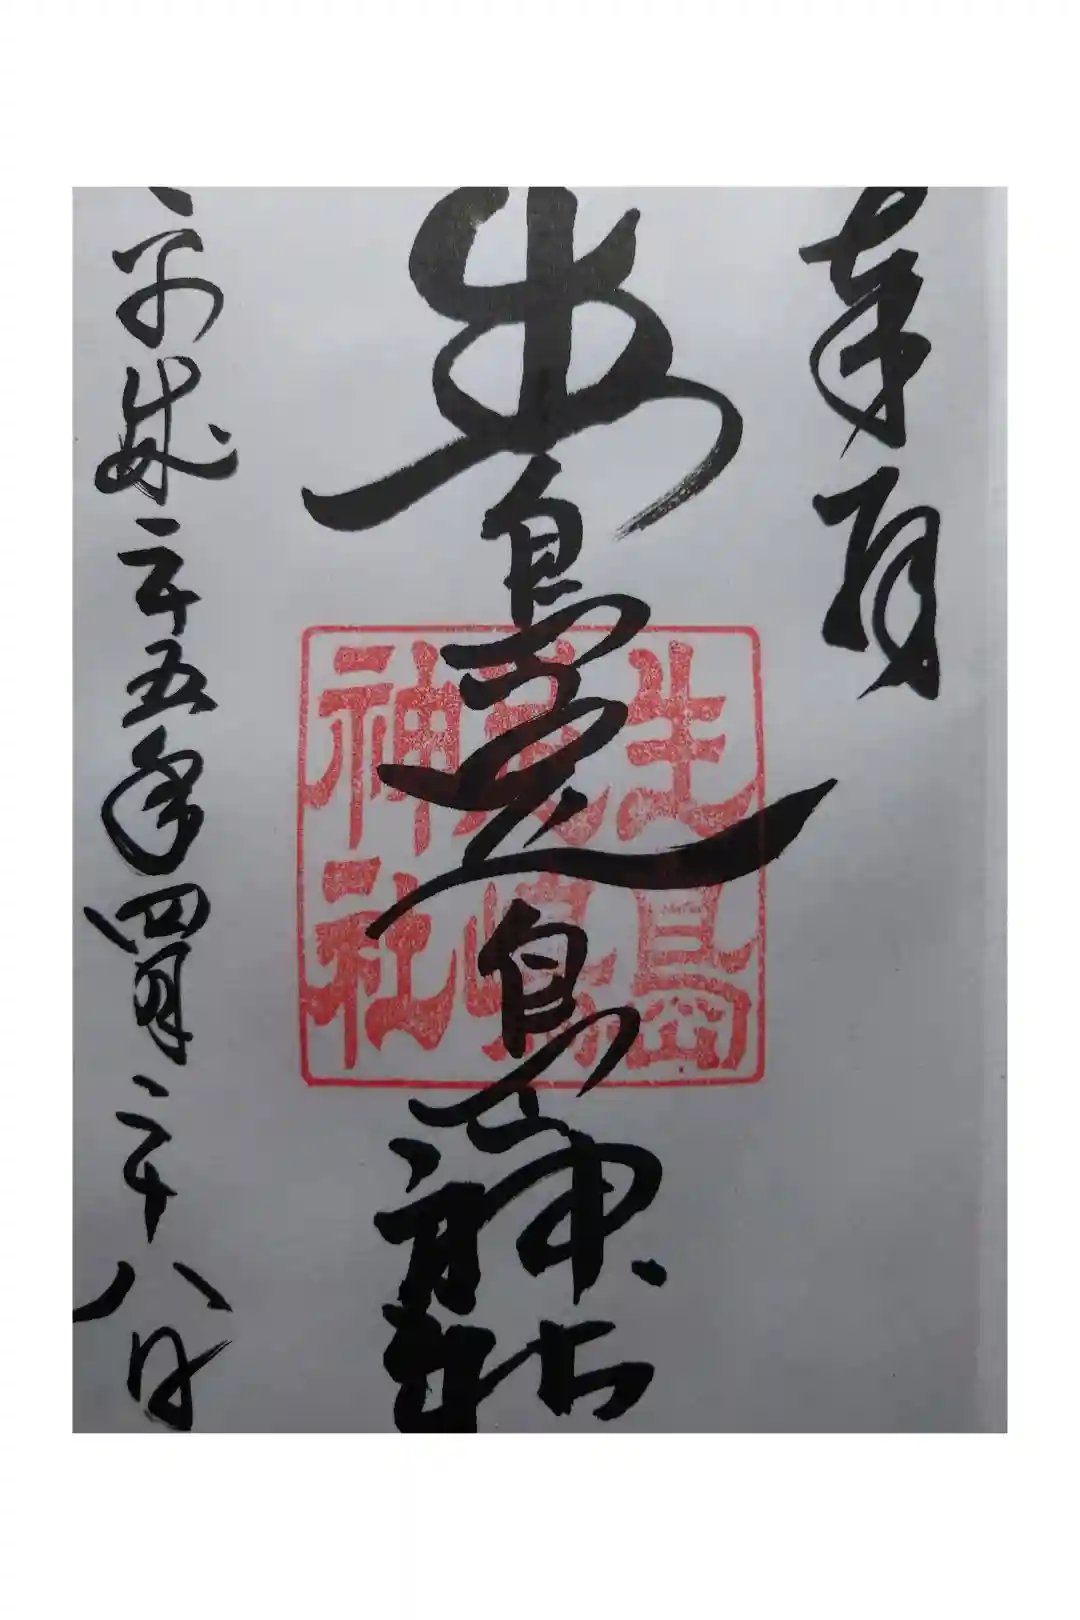 奉拝
生島足島神社
平成二十五年四月二十八日
生島
足嶋
神社